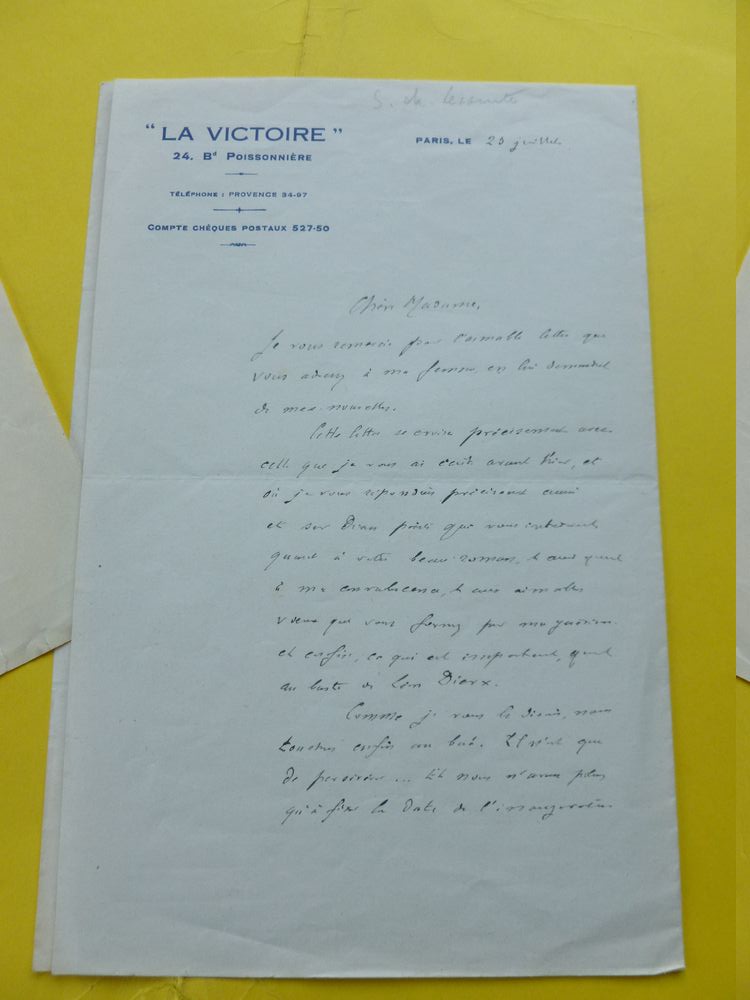 "LA VICTOIRE"
24. Bd POISSONNIÈRE
TÉLÉPHONE : PROVENCE 34-97
COMPTE CHÈQUES POSTAUX 527-50
PARIS, LE 23 juillet
Chère Madame,
Je vous remercie pour l'aimable lettre que
vous à ma femme, en lui demandant
de mes nouvelles.
Cette lettre se croise précisément avec
celle que je vous ai écrite avant hier, et
où je vous répondais précisément aussi
et sur point qui vous
quant à votre beau roman, et aussi quant
à ma convalescence, et aux aimables
vœux que vous formez pour ma guérison.
et enfin, ce qui est important, quant
au buste de Léon Dierx.
Comme je vous le disais, nous
touchons enfin au but. Il n'est que
de persévérer... Et nous n'avons plus
qu'à fixer la date de l'inauguration